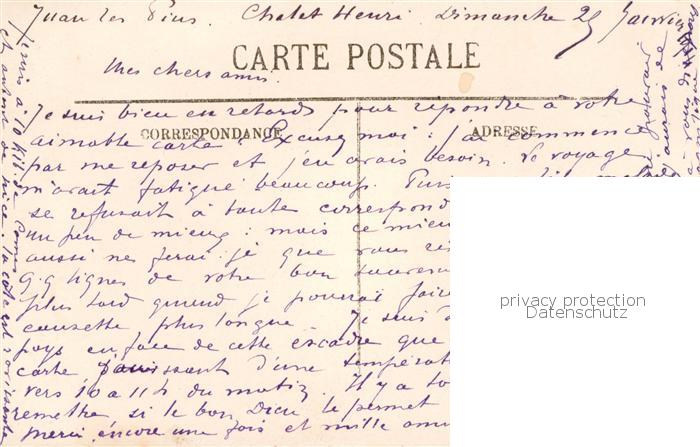 Juan les Pins. Chalet Henri Dimanche 25 Janvier
CARTE POSTALE
Mes chers amis.
Je suis bien en retard pour répondre à votre
aimable carte. Excusez moi : j'ai commencé
CORRESPONDANCE
ADRESSE
par me reposer et j'en avais besoin. Le voyage
m'avait fatigué beaucoup.
se refusait à toute correspond
un peu de mieux : mais ce mieu
aussi ne ferai je que vous
q.q lignes de votre bon
plus tard quand je pourrai faire
causette plus longue. Je suis
pays en face de cette escadre que
carte jouissant d'une températ
vers 10 a 11 h du matin. Il y a
remettre si le bon Dieu le permet
Merci encore une fois et mille ami
je suis à 10 Kil. de Cannes
et autant de Nice. la côte est ravissante
privacy protection
Datenschutz